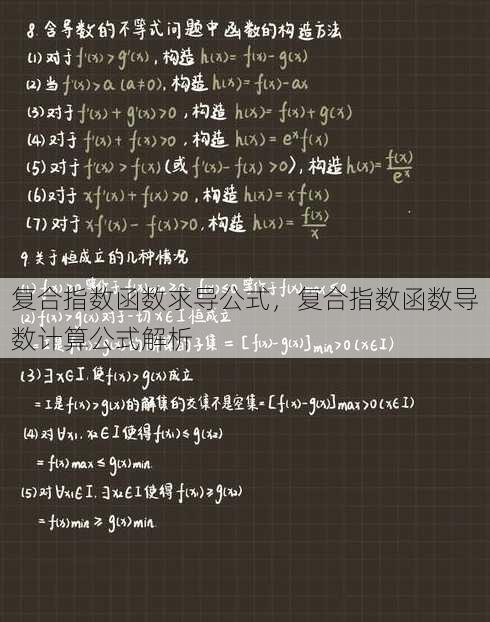 8.含导数的不等式问题中函数的构造方法
(1)对于f'(x)>g'(x),构造h(x)=f(x)-g(x)
(2)当f'(x)>a(a≠0),构造h(x)=f(x)-ax
(3)对于f'(x)+g'(x)>0,构造h(x)=f(x)+g(x)
(4)对于f'(x)+f(x)>0,构造h(x)=eˣf(x)
(5)对于f'(x)>f(x)(或f'(x)-f(x)>0),构造h(x)=f(x)/eˣ
(6)对于xf'(x)+f(x)>0,构造h(x)=xf(x)
(7)对于xf'(x)-f(x)>0,构造h(x)=f(x)/x
9.关于恒成立的几种情况
复合指数函数求导公式，复合指数函数导
(2)f(x)>g(x)对于一切x∈I恒成立
数计算公式解析
子集=[f(x)-g(x)]min>0(x∈I)
(3)∃x∈I,使f(x)>g(x)成立
=I是f(x)>g(x)的解集的交集不是空集=[f(x)-g(x)]max>0(x∈I)
(4)对∀x₁,x₂∈I使得f(x₁)≤g(x₂)
=f(x)max≤g(x)min
(5)对∀x₁∈I,∃x₂∈I使得f(x₁)≥g(x₂)
=f(x)min≥g(x)min